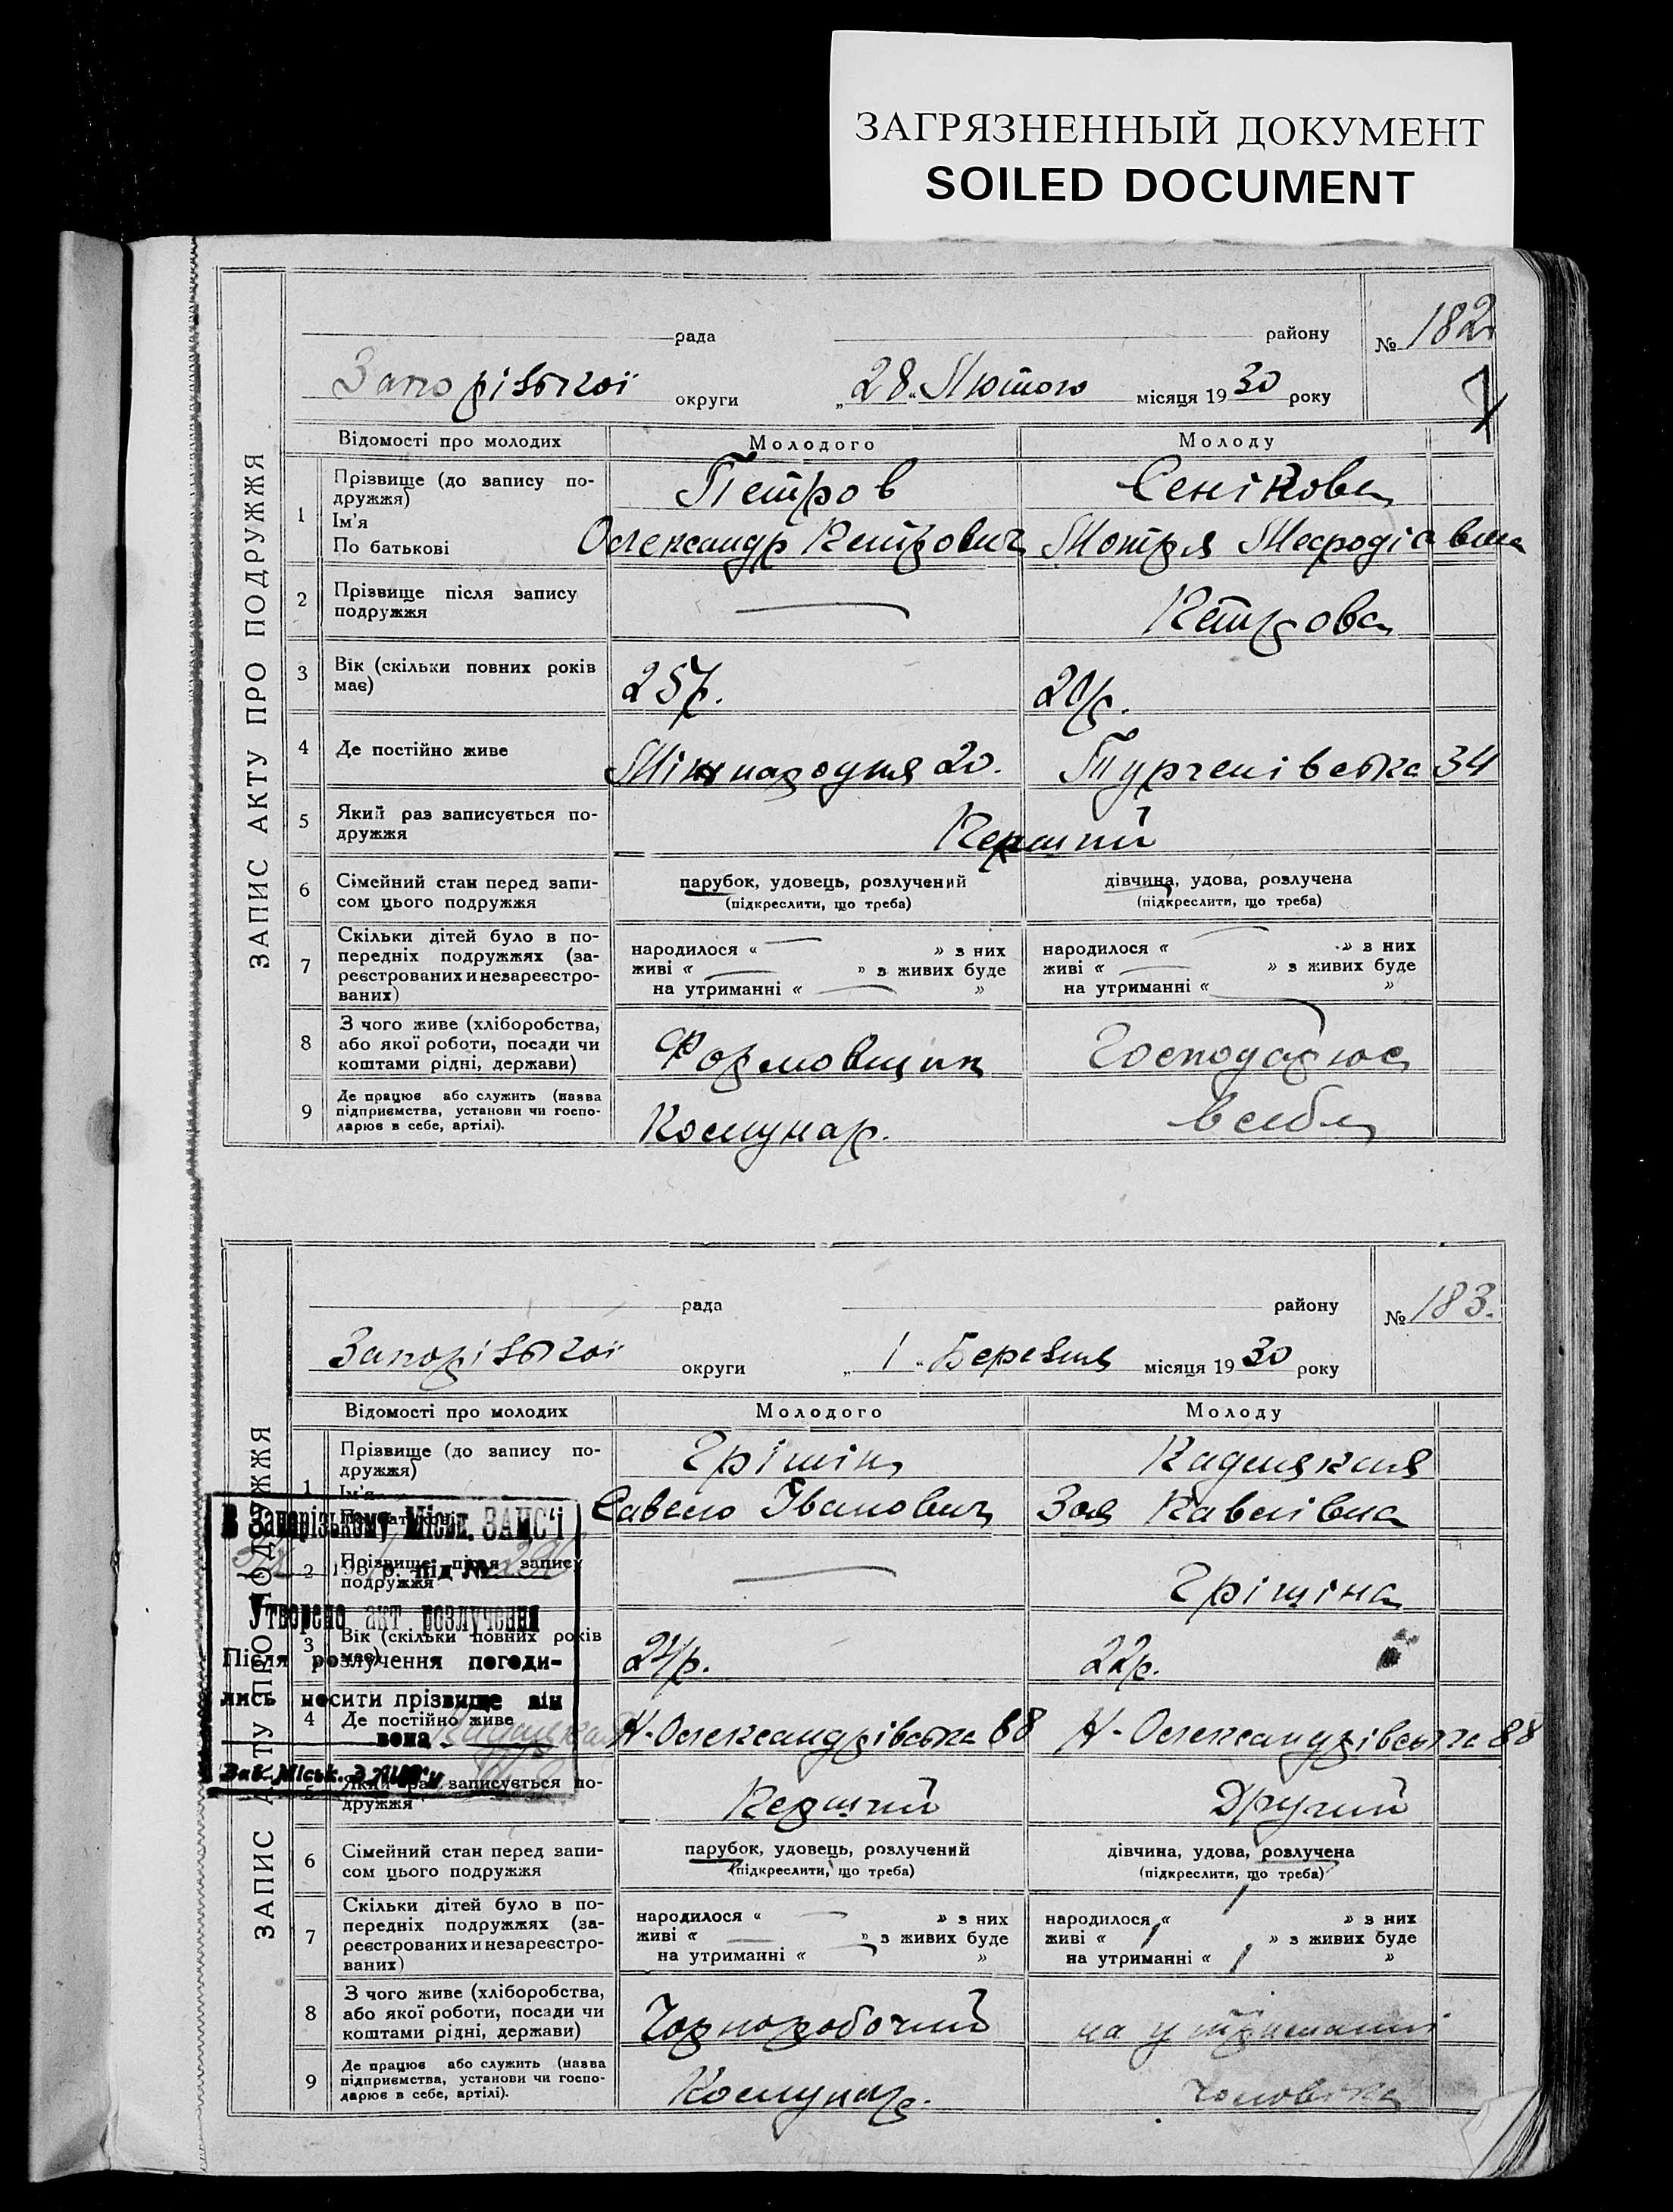 ЗАГРЯЗНЕННЫЙ ДОКУМЕНТ
SOILED DOCUMENT
ЗАПИС АКТУ ПРО ПОДРУЖЖЯ
рада района
району
№ 182
Запорізької округи „28“ Лютого місяця 1930 року
Відомості про молодих Молодого Молоду
1 Прізвище (до запису по-
дружжя) Петров Сенікова
Ім'я
По батькові Олександр Петрович Мотря Мефодіівна
2 Прізвище після запису
подружжя — Петрова
3 Вік (скільки повних років
має) 25р. 20р.
4 Де постійно живе Міжнародня 20. Тургенівська 34
5 Який раз записується по-
дружжя Перший
6 Сімейний стан перед запи-
сом цього подружжя
парубок, удовець, розлучений
(підкреслити, що треба)
дівчина, удова, розлучена
(підкреслити, що треба)
7 Скільки дітей було в по-
передніх подружжях (за-
реєстрованих и незареєстро-
ваних)
народилося « — » з них
живі « — » з живих буде
на утриманні « — »
народилося « — » з них
живі « — » з живих буде
на утриманні « — »
8 З чого живе (хліборобства,
або якої роботи, посади чи
коштами рідні, держави) Формовщик Господарює
9 Де працює або служить (назва
підприємства, установи чи госпо-
дарює в себе, артілі). Комунар. в себе
ЗАПИС АКТУ ПРО ПОДРУЖЖЯ
рада
району
№ 183.
Запорізької округи „1“ Березня місяця 1930 року
Відомості про молодих Молодого Молоду
1 Прізвище (до запису по-
дружжя) Грішин
Ім'я
По батькові Савело Іванович Зоя Павлівна
2 Прізвище після запису
подружжя — Грішина
3 Вік (скільки повних років
має) 22р.
4 Де постійно живе Н-Олександрівська 88 Н-Олександрівська 88
5 Який раз записується по-
дружжя Перший Другий
6 Сімейний стан перед запи-
сом цього подружжя
парубок, удовець, розлучений
(підкреслити, що треба)
дівчина, удова, розлучена
(підкреслити, що треба)
7 Скільки дітей було в по-
передніх подружжях (за-
реєстрованих и незареєстро-
ваних)
народилося « — » з них
живі « — » з живих буде
на утриманні « — »
народилося « 1 » з них
живі « 1 » з живих буде
на утриманні « 1 »
8 З чого живе (хліборобства,
або якої роботи, посади чи
коштами рідні, держави) Чорноробочий на утриманні
9 Де працює або служить (назва
підприємства, установи чи госпо-
дарює в себе, артілі). Комунар. чоловіка
В Запорізькому Міськ. ЗАГС'і
193 р. під №
Утворено акт розлучення
Після розлучення погоди-
лись носити прізвище він
вона
Зав. Міськ. ЗАГС'у